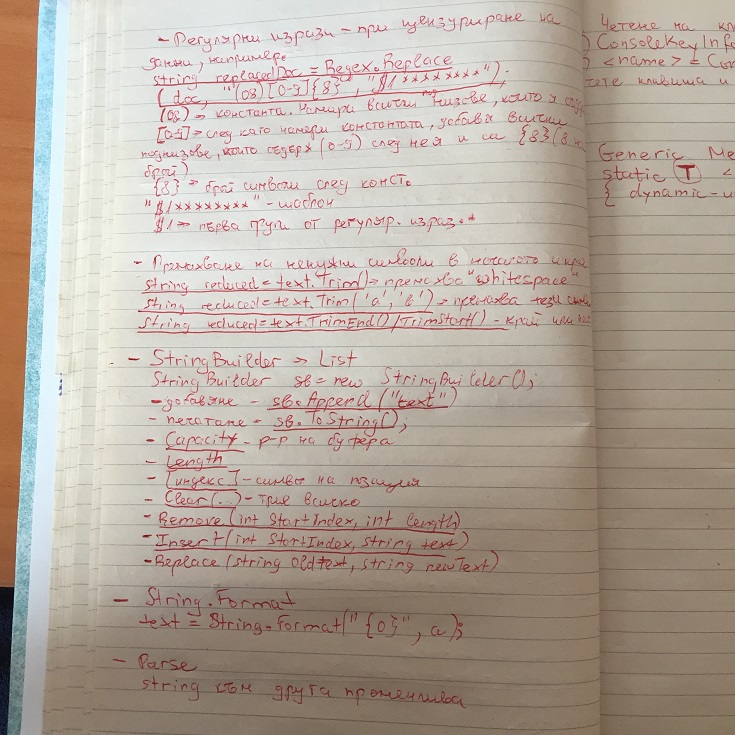 - Регулярни изрази - при цензуриране на
данни, например
string replacedDoc = Regex.Replace
(doc, "(08)[0-9]{8}", "$1********");
(08) -> константа. Намира всички низове, които я
[0-9] -> след като намери константата, добавя всички
поднизове, които съдърж (0-9) след нея и са {8} (8 на
брой)
{8} -> брой символи след конст.
"$1********" - шаблон
$1 -> първа група от регуляр. израз.
- Премахване на ненужни символи в началото и края
string reduced = text.Trim() -> премахва "whitespace"
string reduced = text.Trim('a','b') -> премахва тези
string reduced = text.TrimEnd() / TrimStart() - край или
- StringBuilder -> List
StringBuilder sb = new StringBuilder();
- добавяне - sb.Append("text")
- печатане - sb.ToString();
- Capacity - р-р на буфера
- Length
- [индекс] - символ на позиция
- Clear(...) - трие всичко
- Remove(int StartIndex, int length)
- Insert(int StartIndex, string text)
- Replace(string oldtext, string newText)
- String.Format
text = String.Format("{0}", a);
- Parse
string към друга променлива
Четене на
ConsoleKeyInfo
<name> = Con
клавиша и
Generic Me
static (T) <
{ dynamic -